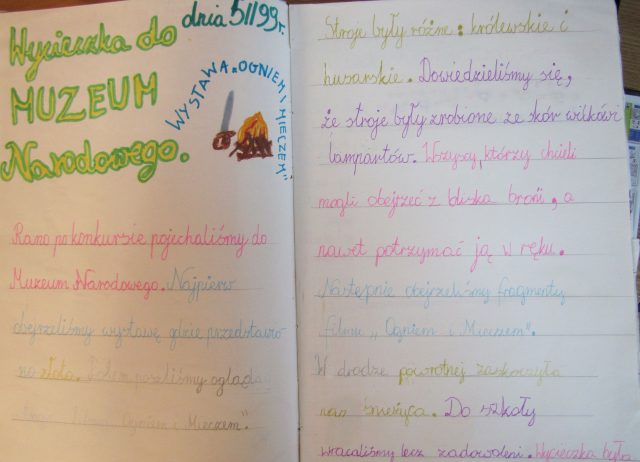 Wycieczka do
MUZEUM
Narodowego.
dnia 5 II 99 r.
WYSTAWA „OGNIEM I MIECZEM"
Rano po konkursie pojechaliśmy do
Muzeum Narodowego. Najpierw
obejrzeliśmy wystawę gdzie przedstawio
no złoto. Potem poszliśmy oglądą
Ogniem i Mieczem".
Stroje były różne: królewskie i
husarskie. Dowiedzieliśmy się,
że stroje były zrobione ze skór wilków
lampartów. Wszyscy, którzy chcieli
mogli obejrzeć z bliska broń, a
nawet potrzymać ją w ręku.
Następnie obejrzeliśmy fragmenty
filmu „Ogniem i Mieczem".
W drodze powrotnej zaskoczyła
nas śnieżyca. Do szkoły
wracaliśmy lecz zadowoleni. Wycieczka była